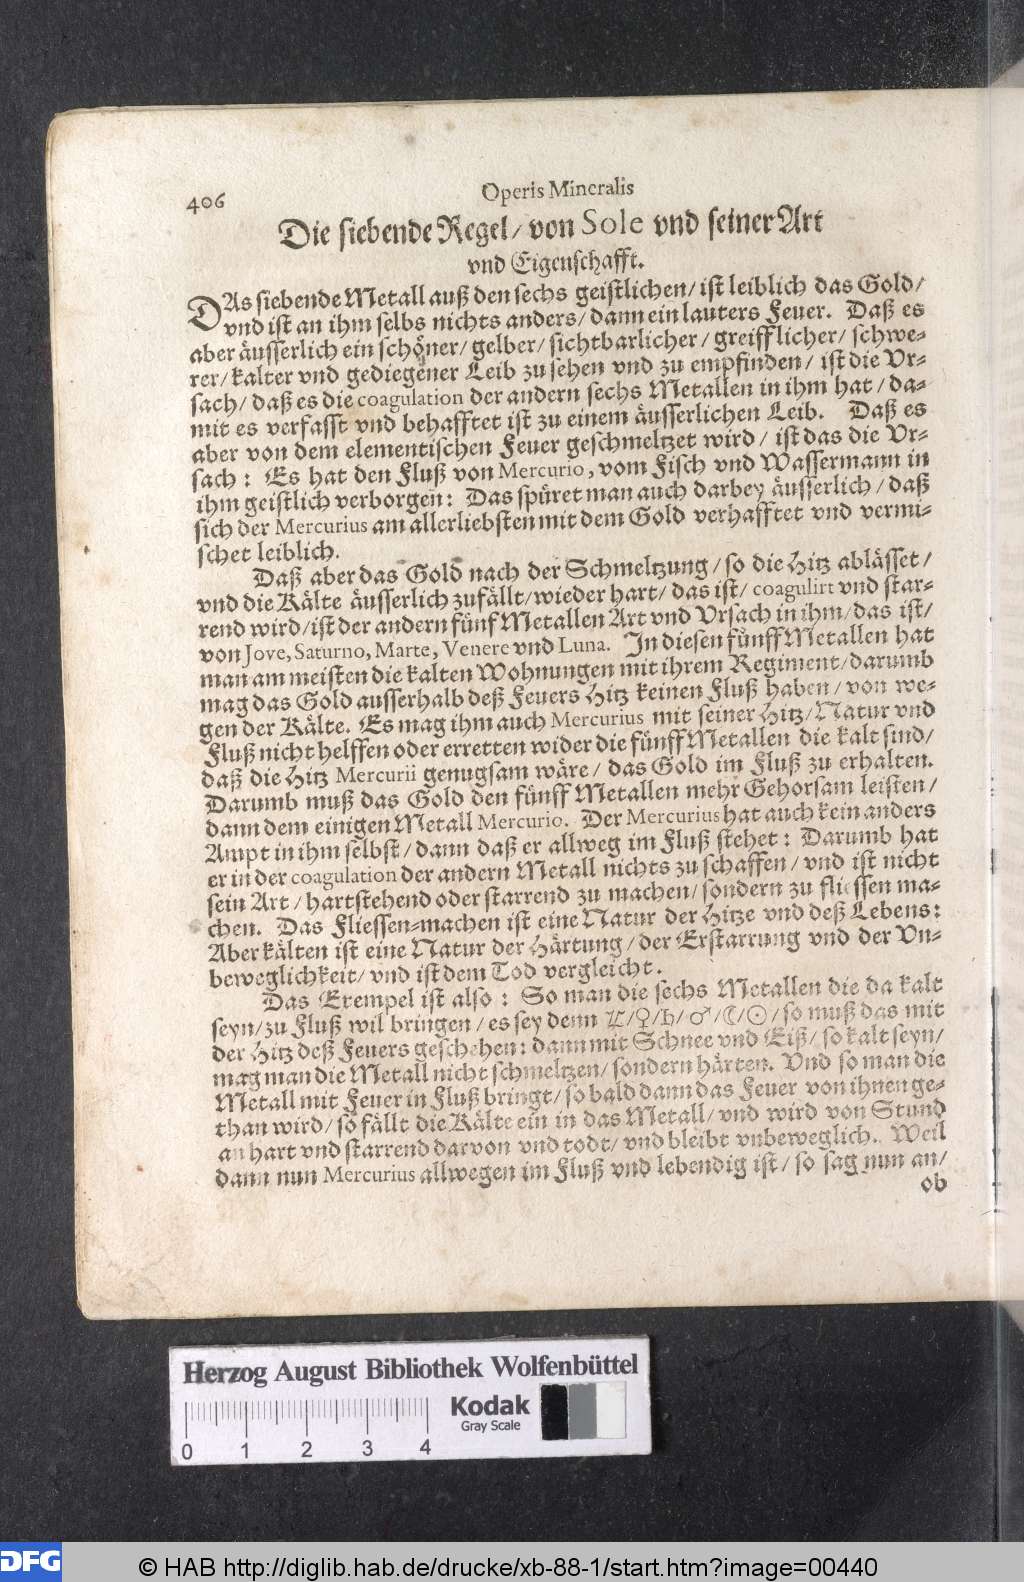 406
Operis Mineralis
Die siebende Regel / von Sole vnd seiner Art
vnd Eigenschafft.
DAs siebende Metall auß den sechs geistlichen / ist leiblich das Gold /
vnd ist an ihm selbs nichts anders / dann ein lauters Feuer. Daß es
aber äusserlich ein schöner / gelber / sichtbarlicher / greifflicher / schwe-
rer / kalter vnd gediegener Leib zu sehen vnd zu empfinden / ist die Vr-
sach / daß es die coagulation der andern sechs Metallen in ihm hat / da-
mit es verfasst vnd behafftet ist zu einem äusserlichen Leib. Daß es
aber von dem elementischen Feuer geschmeltzet wird / ist das die Vr-
sach : Es hat den Fluß von Mercurio, vom Fisch vnd Wassermann in
ihm geistlich verborgen : Das spüret man auch darbey äusserlich / daß
sich der Mercurius am allerliebsten mit dem Gold verhafftet vnd vermi-
schet leiblich.
Daß aber das Gold nach der Schmeltzung / so die Hitz ablässet /
vnd die Kälte äusserlich zufällt / wieder hart / das ist / coagulirt vnd star-
rend wird / ist der andern fünf Metallen Art vnd Vrsach in ihm / das ist /
von Jove, Saturno, Marte, Venere vnd Luna. In diesen fünff Metallen hat
man am meisten die kalten Wohnungen mit ihrem Regiment / darumb
mag das Gold ausserhalb deß Feuers Hitz keinen Fluß haben / von we-
gen der Kälte. Es mag ihm auch Mercurius mit seiner Hitz / Natur vnd
Fluß nicht helffen oder erretten wider die fünff Metallen die kalt sind /
daß die Hitz Mercurii genugsam wäre / das Gold im Fluß zu erhalten.
Darumb muß das Gold den fünff Metallen mehr Gehorsam leisten /
dann dem einigen Metall Mercurio. Der Mercurius hat auch kein anders
Ampt in ihm selbst / dann daß er allweg im Fluß stehet : Darumb hat
er in der coagulation der andern Metall nichts zu schaffen / vnd ist nicht
sein Art / hartstehend oder starrend zu machen / sondern zu fliessen ma-
chen. Das Fliessen-machen ist eine Natur der Hitze vnd deß Lebens :
Aber kälten ist eine Natur der Härtung / der Erstarrung vnd der Vn-
beweglichkeit / vnd ist dem Tod vergleicht.
Das Exempel ist also : So man die sechs Metallen die da kalt
seyn / zu Fluß wil bringen / es sey denn ♃ / ♀ / ♄ / ♂ / ☾ / ☉ / so muß das mit
der Hitz deß Feuers geschehen : dann mit Schnee vnd Eiß / so kalt seyn /
mag man die Metall nicht schmeltzen / sondern härten. Vnd so man die
Metall mit Feuer in Fluß bringt / so bald dann das Feuer von ihnen ge-
than wird / so fällt die Kälte ein in das Metall / vnd wird von Stund
an hart vnd starrend darvon vnd todt / vnd bleibt vnbeweglich. Weil
dann nun Mercurius allwegen im Fluß vnd lebendig ist / so sag nun an /
ob
Herzog August Bibliothek Wolfenbüttel
0 1 2 3 4
Kodak
Gray Scale
DFG
© HAB http://diglib.hab.de/drucke/xb-88-1/start.htm?image=00440